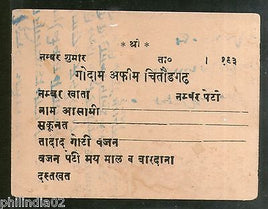 * श्री *
नम्बर शुमार ता० । १९३
गोदाम अफीम चित्तौडगढ
नम्बर खाता नम्बर पेटी
नाम आसामी
सकूनत
तादाद गोटी वजन
वजन पेटी मय माल व बारदाना
दस्तखत
philindia02